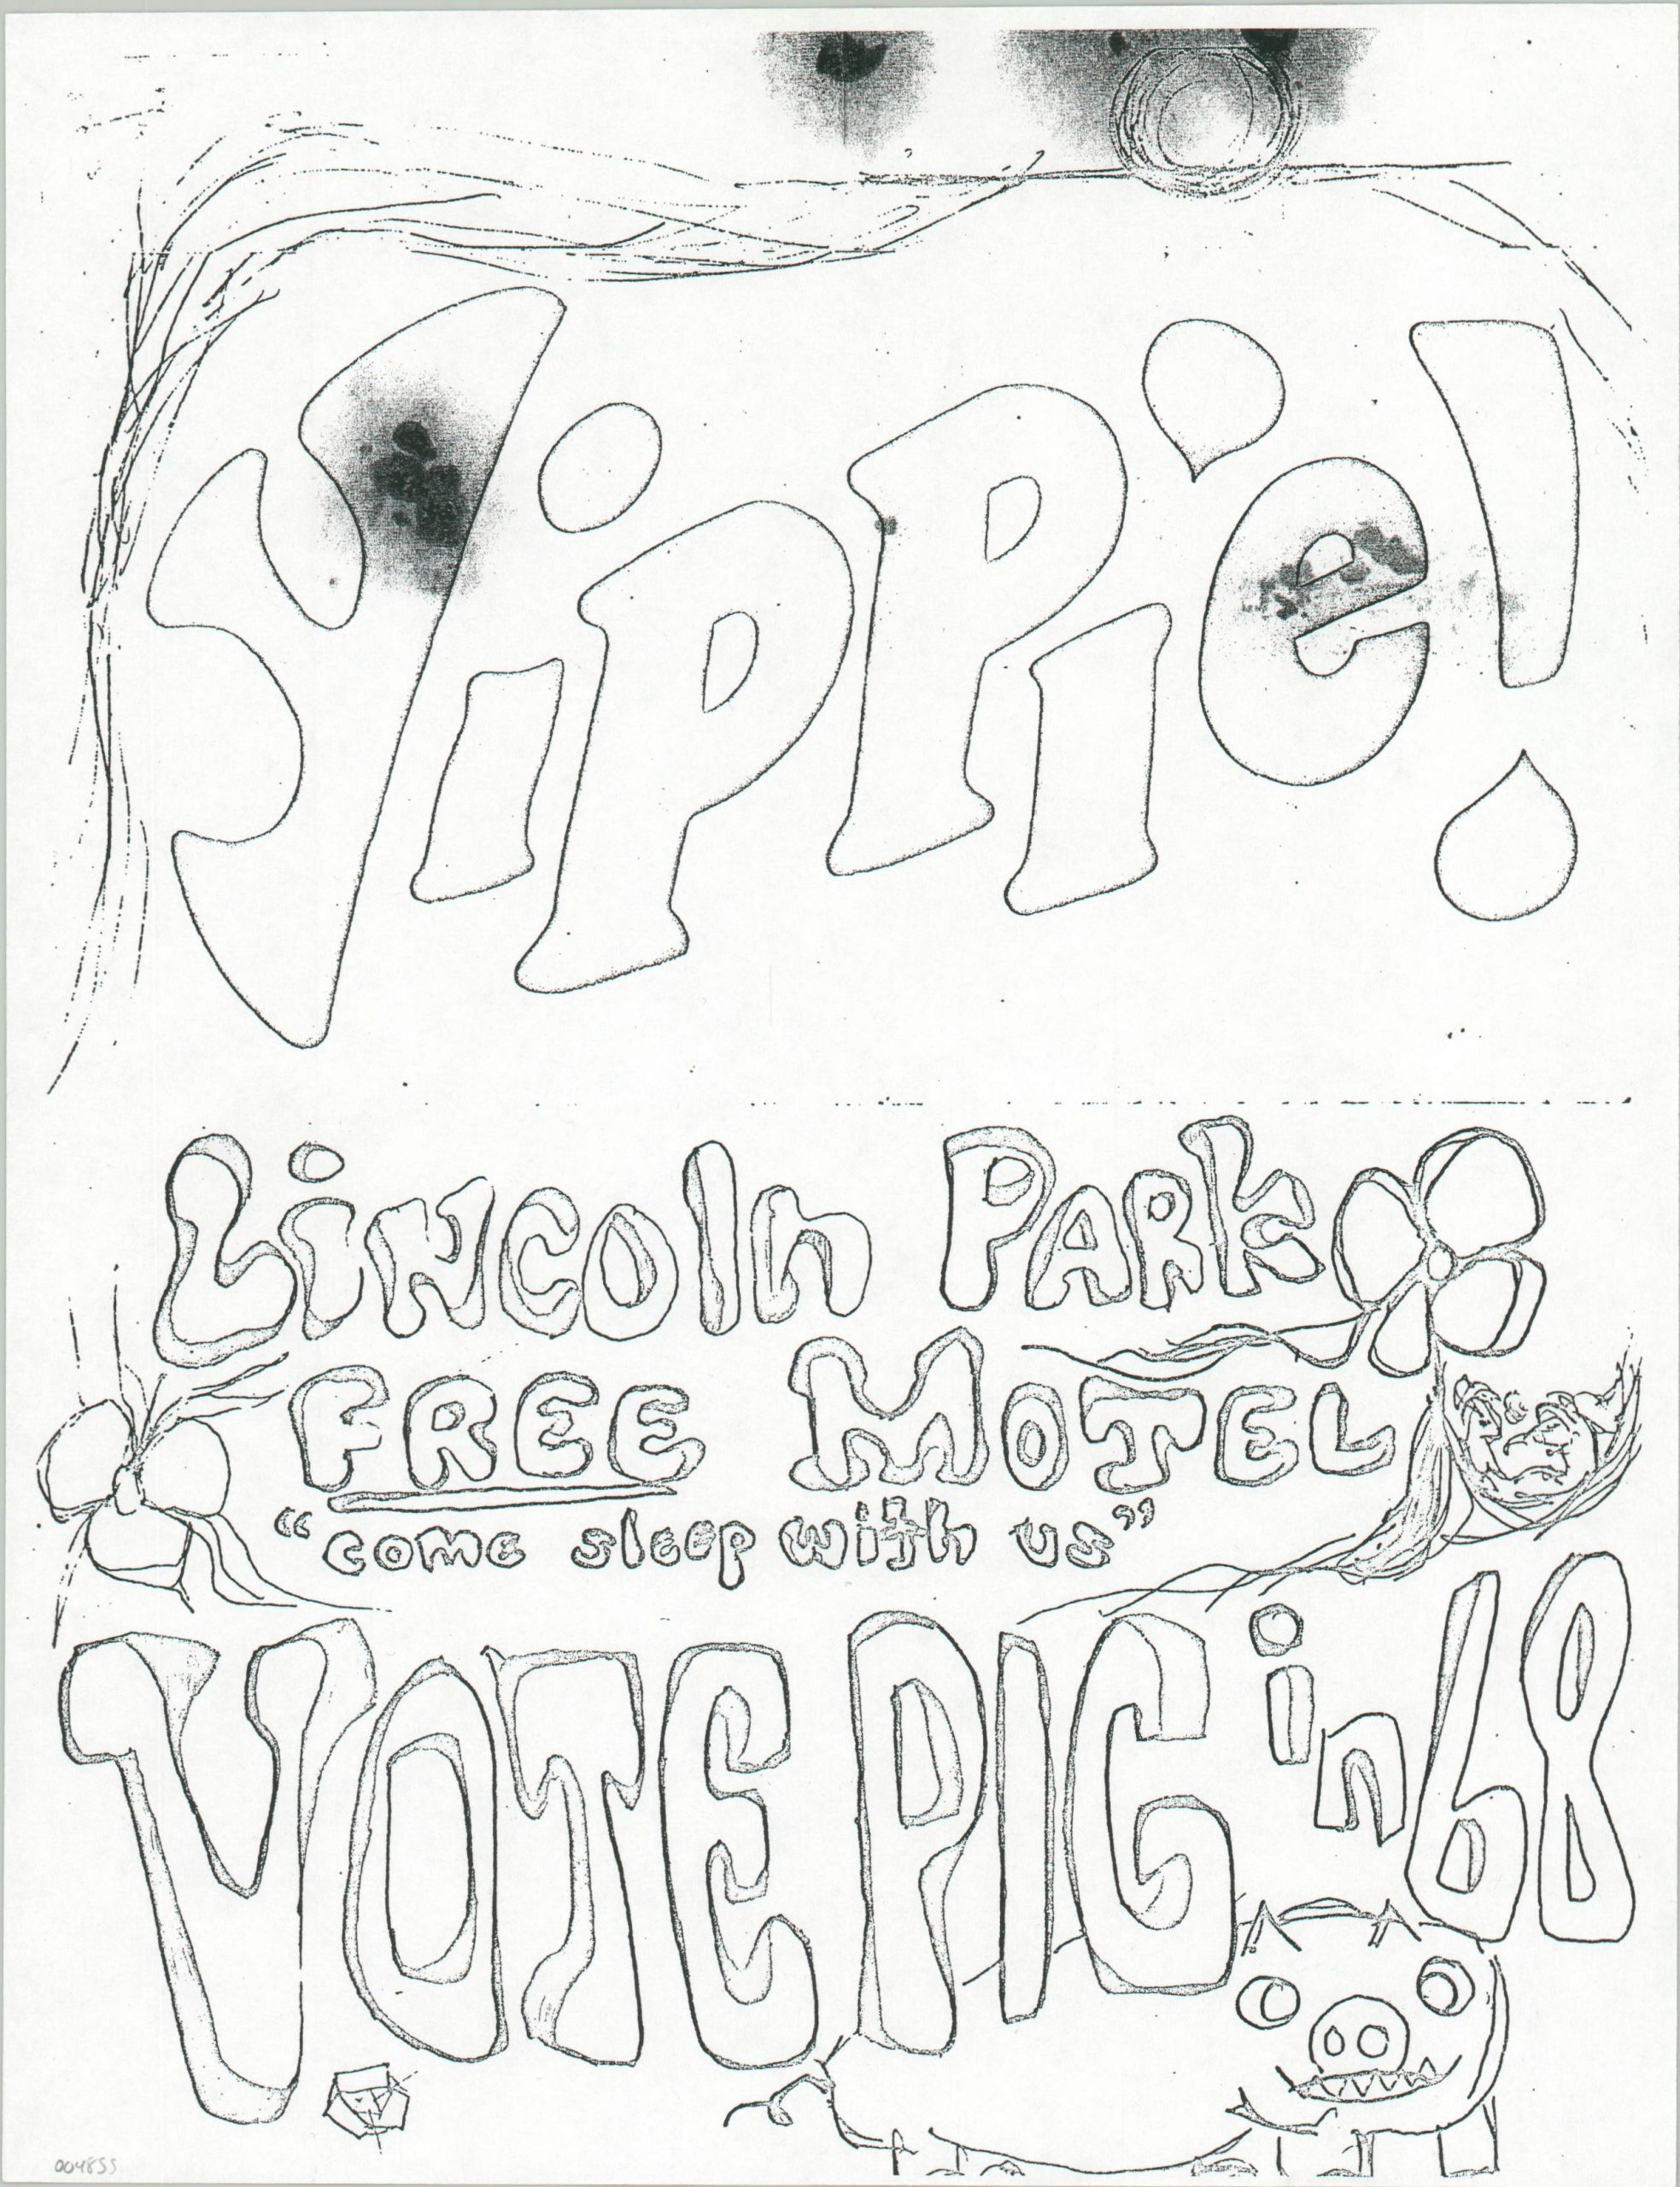 Yippie!
Lincoln Park
FREE Motel
"come sleep with us"
VOTE PIG in 68
004855